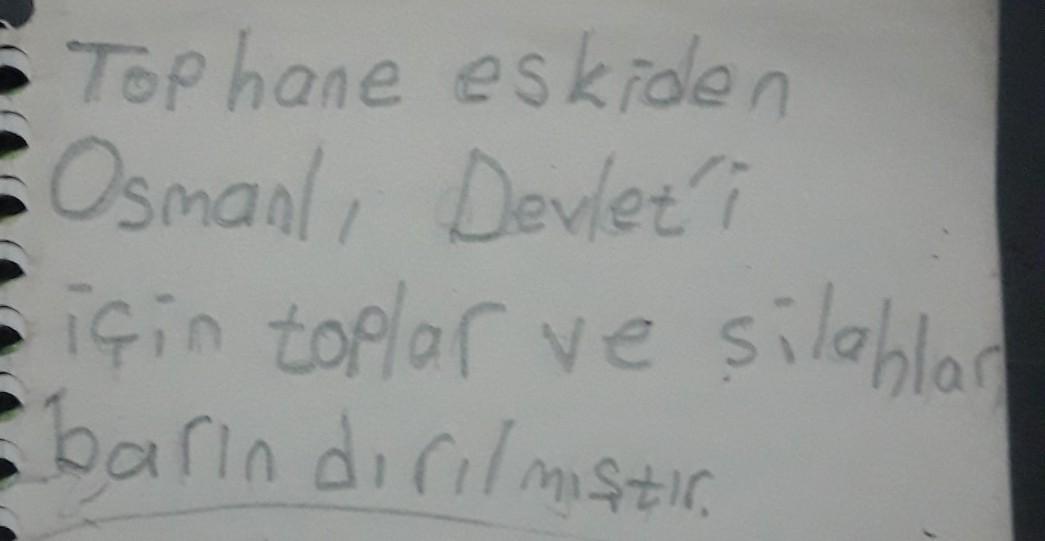 Tophane eskiden
Osmanlı Devlet'i
için toplar ve silahlar
barındırılmıştır.